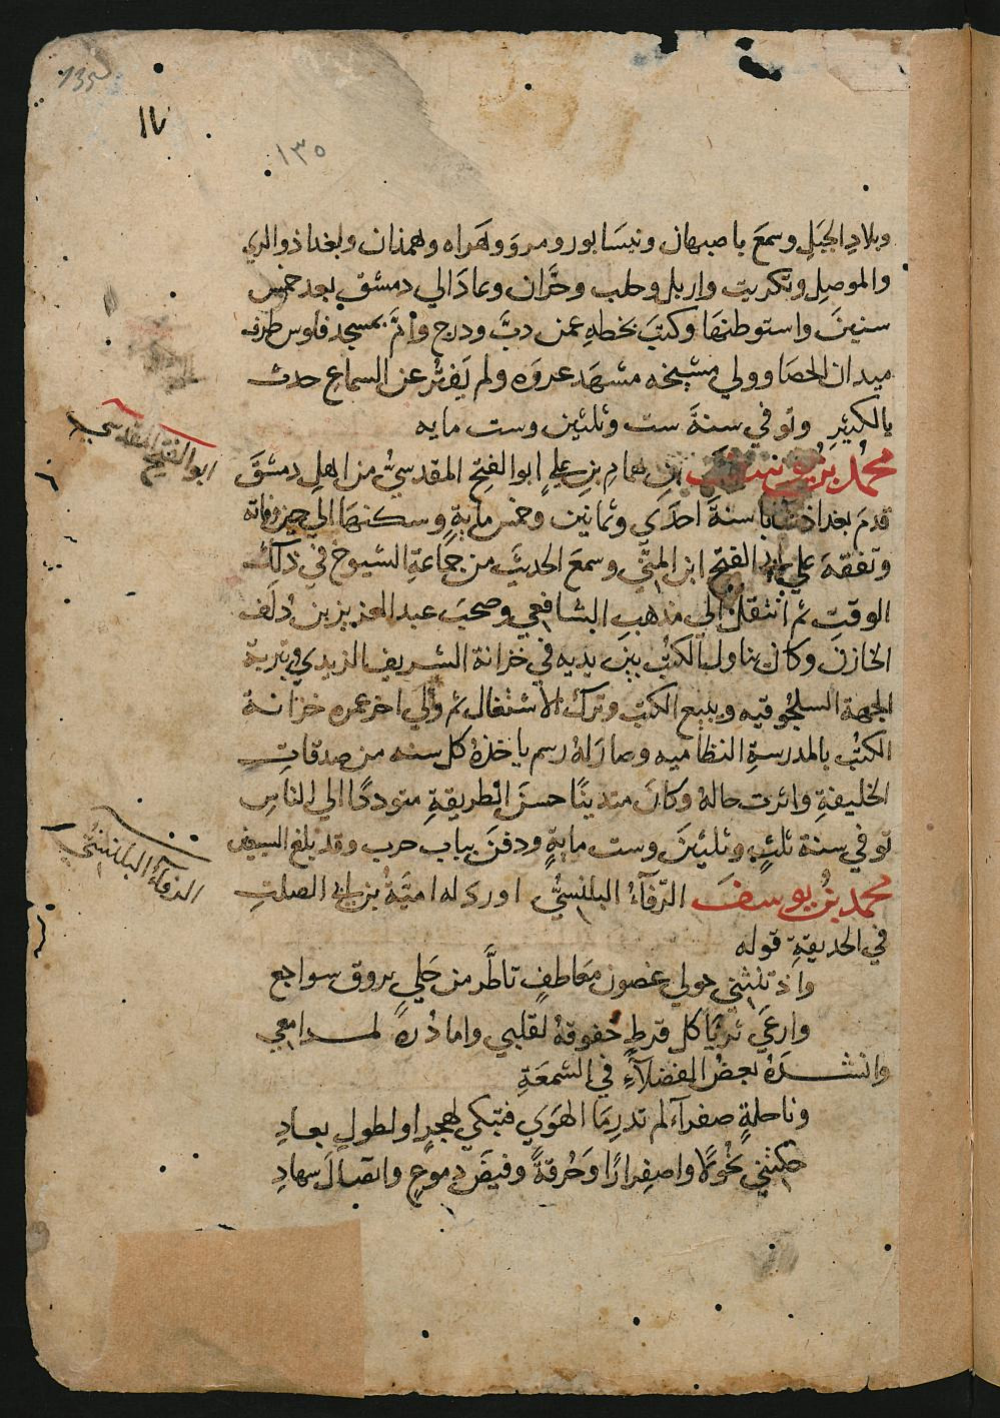 135
١٧
١٣٥
وبلاد الجبل وسمعَ باصبهان ونيسَابور ومروَ وهَراه وهمذان وبغداذ والري
والموصِل وتكريت واربل وحلب وحَرَّان وعادَ الي دمشق بعد خمس
سنينَ واستوطنهَا وكتبَ بخطهِ عمن دبَّ ودرج وأمَّ بمسجد فلوس طرف
ميدان الحصَا وولي مشيخه مشهَد عروَه ولم يَفتُر عن السماعِ حدث
بالكثيرِ وتوفي سنةَ ست وثلثين وست مايه
ابو الفتح المقدسي
محمدُ بنُ يوسف بنِ همامِ بنِ عليٍ ابو الفتح المقدسيُّ من اهلِ دمشقَ
قدمَ بغداذ شابا سنةَ احدَي وثمانين وخمس مايةٍ وسكنهَا الي حين وفاته
وتفقهَ علي ابي الفتح ابن المنّي وسمعَ الحديثَ من جماعةِ الشيوخ في ذلك
الوقتِ ثم انتقل الي مذهبِ الشافعي وصحبَ عبد العزيز بن دُلَف
الخازنَ وكان يناول الكتُب بينَ يديه في خزانة الشريف الزيدي وبتربة
الجهة السلجوقيه ويبيع الكتبَ وترك الاشتغال ثم وُلّي اخر عمره خزانة
الكتُب بالمدرسةِ النظاميه وصارَ لهُ رسم ياخذهُ كل سنه من صدقاتِ
الخليفةِ واثرت حالهُ وكانَ متدينًا حسنَ الطريقةِ متوددًا الي الناسِ
توفي سنة ثلثٍ وثلثينَ وست مايةٍ ودفنَ بباب حرب وقد بلغ السبعين
الرفآء البلنسيُّ
محمد بنُ يوسفَ الرّفآءُ البلنسيُّ اوردَ له اميَّةُ بن ابي الصلتِ
في الحديقةِ قوله
واذ تنثني حولي غصون معَاطفٍ تاطَّر من حَلي بروق سواجع
وارعَي ثريّا كل قرطٍ خفوقهُ لقلبي واما دُرهُ لمدامعي
وانشدَهُ بعضُ الفضلآءِ في الشمعَةِ
وناحلةٍ صفرآءَ لم تدرِ مَا الهوَي فتبكي لهجرٍ او لطولِ بعادِ
حكتني نُحُولًا واصفِرارًا وَحُرقةً وفيضَ دموعٍ واتصالَ سهادِ